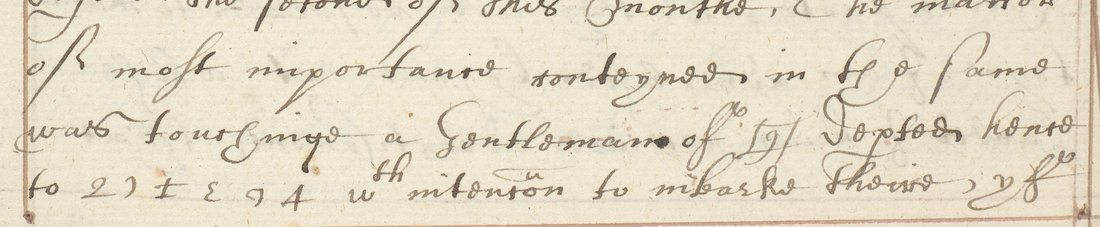 the second of this Monthe, The matter
of most importance conteyned in the same
was touchinge a Gentleman of [9] depted hence
to wth intencõn to inbarke theire, yf